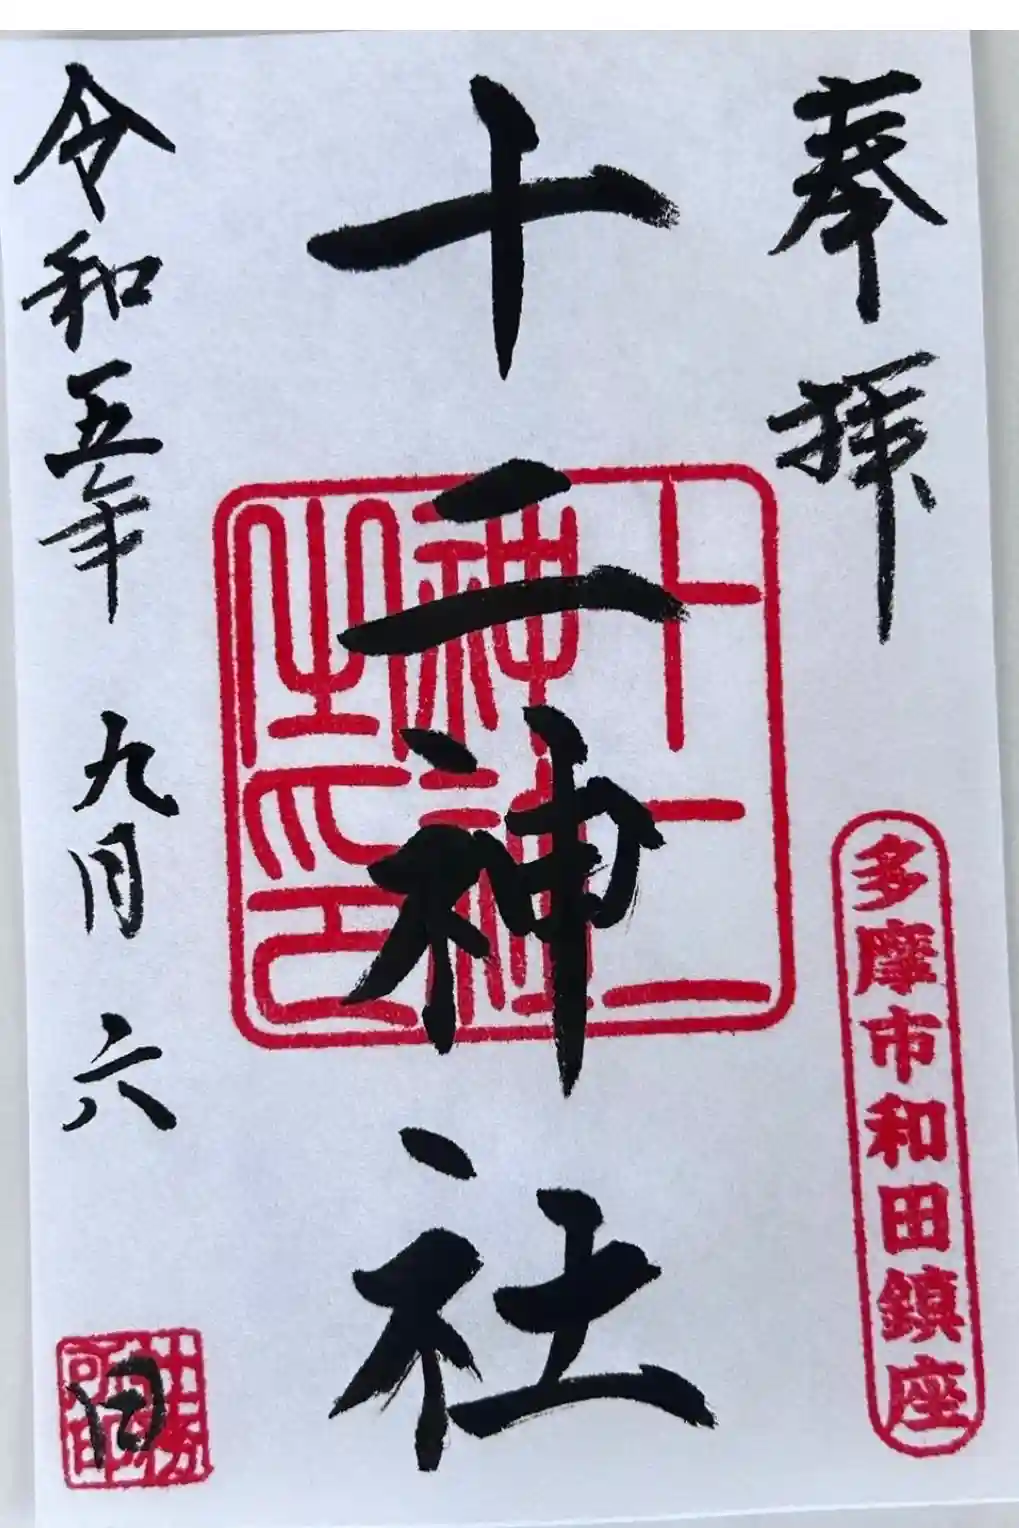 奉拝
多摩市和田鎮座
十二神社
十二神社之印
令和五年九月六日